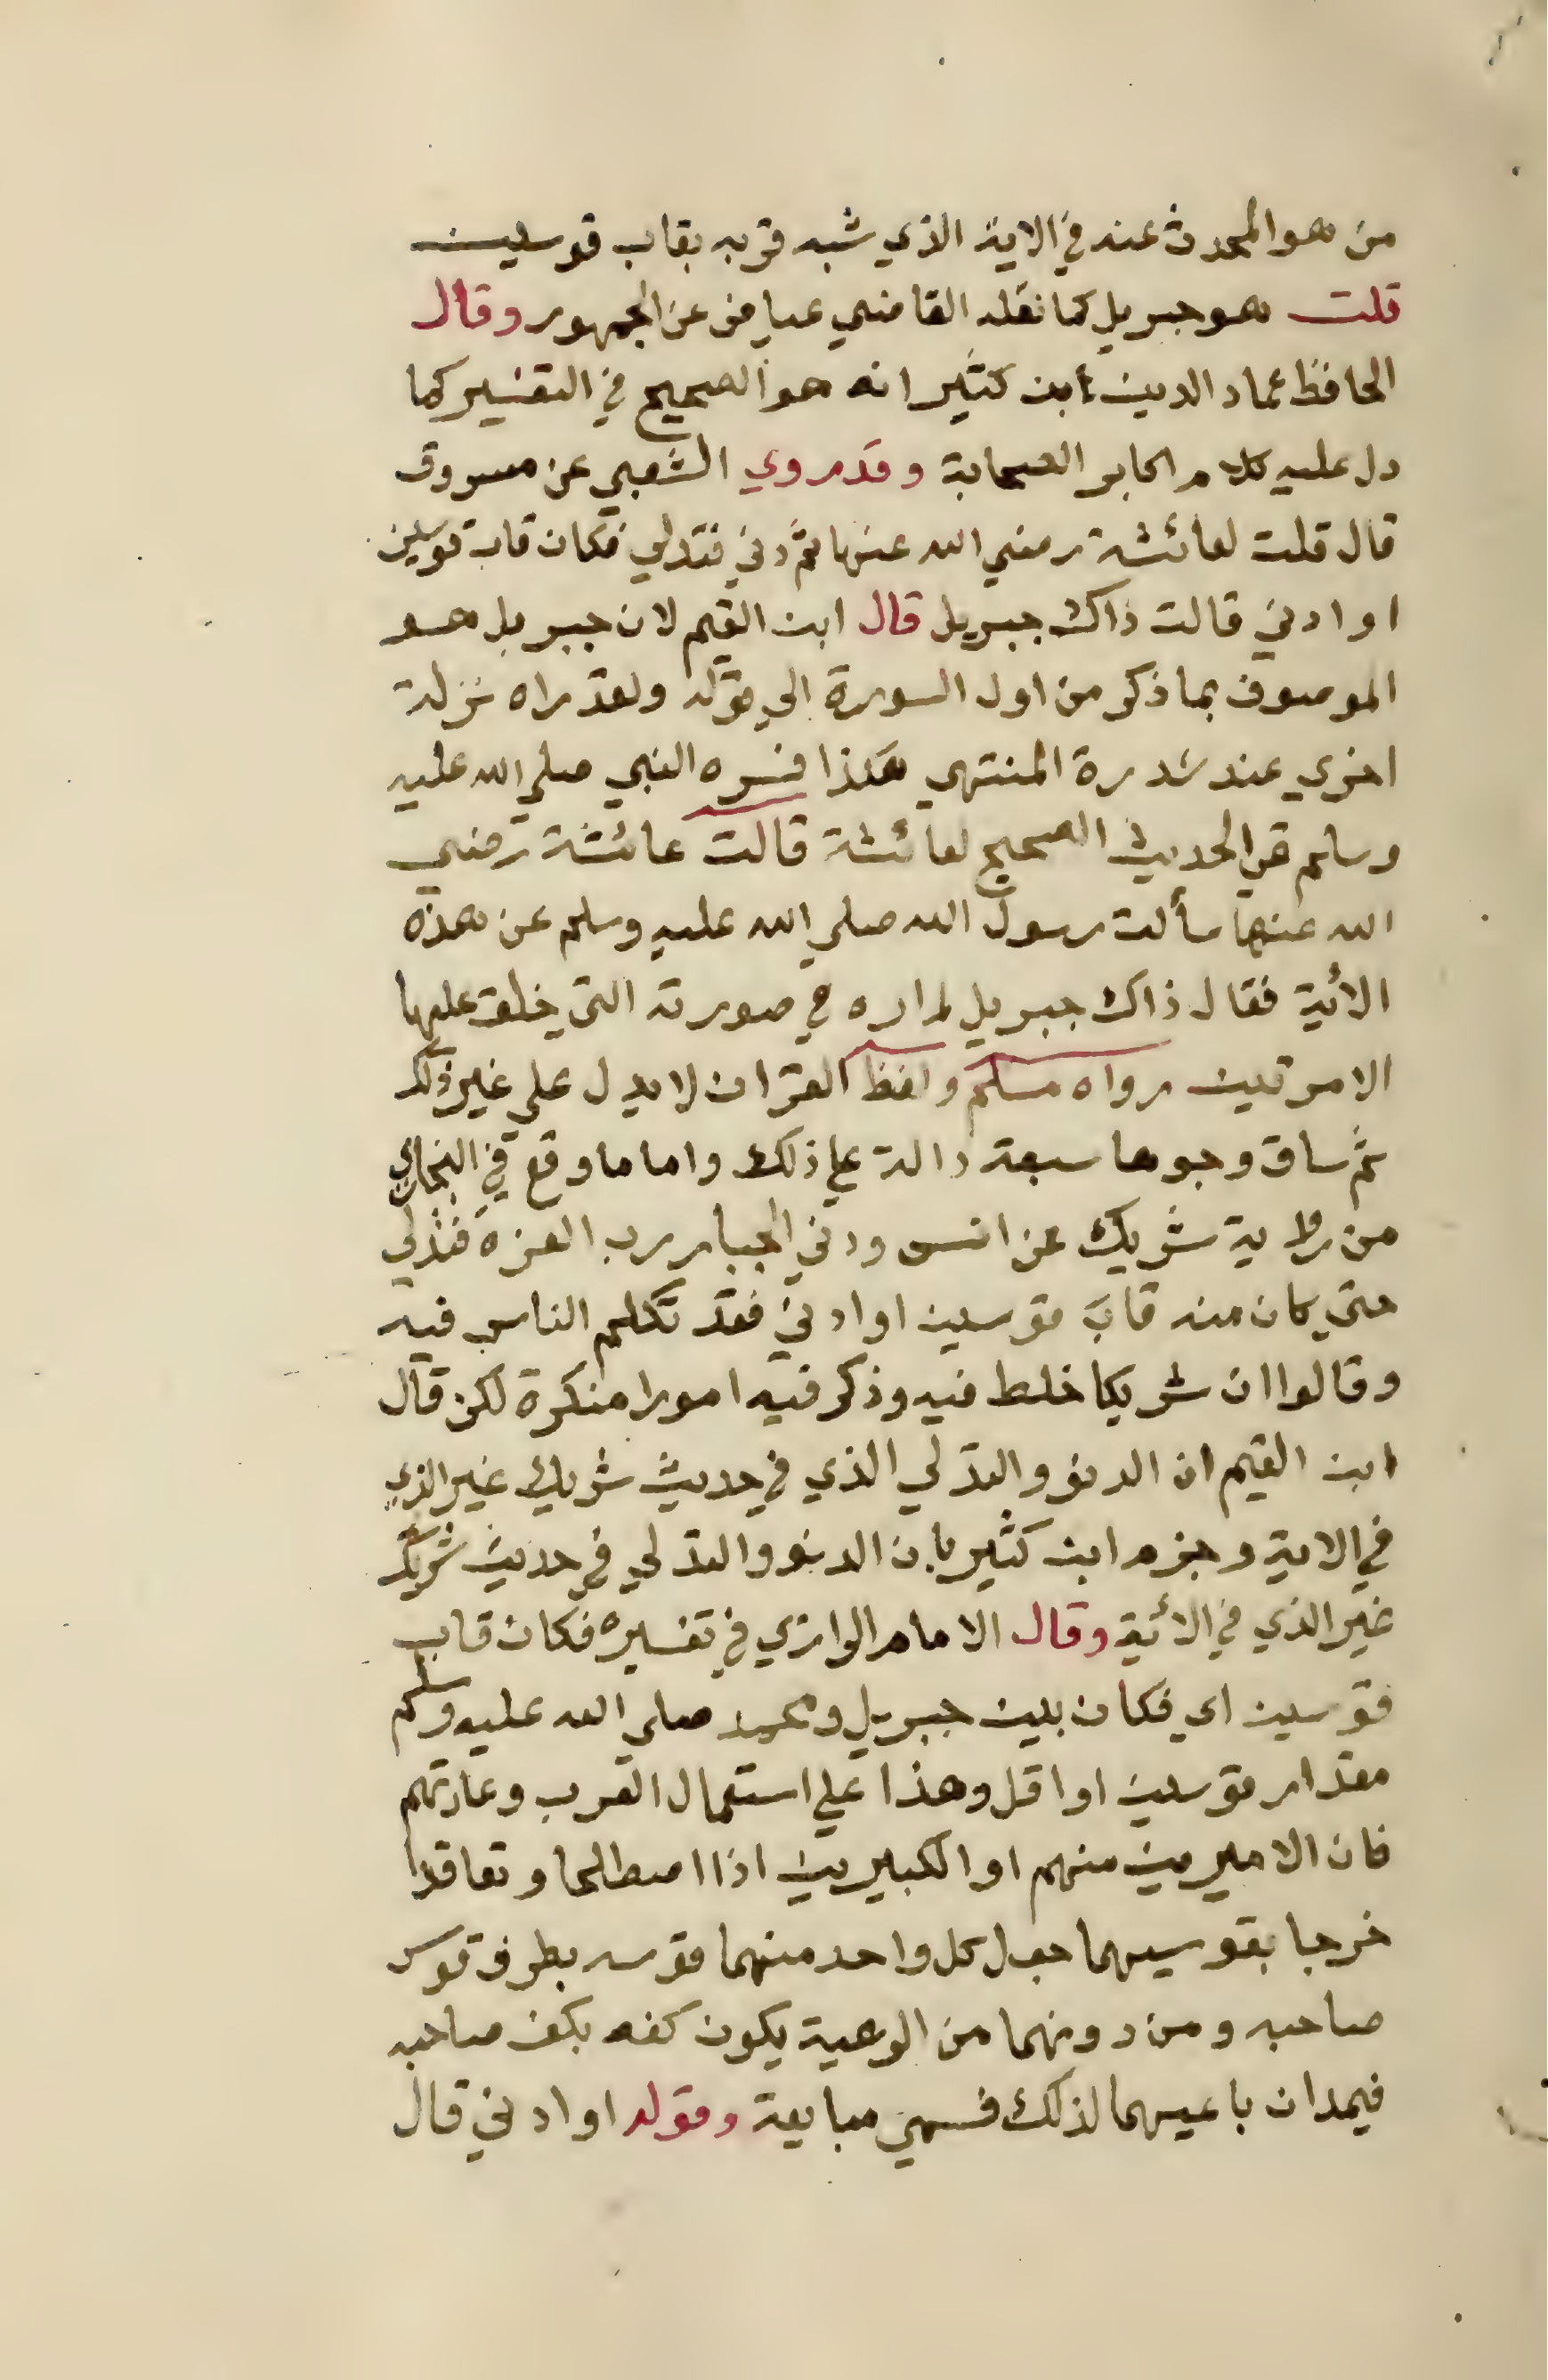 من هو المحدث عنه في الاية الذي شبه قربه بقاب قوسين
قلت هو جبريل كما نقله القاضي عياض عن الجمهور وقال
الحافظ عماد الدين ابن كثير انه هو الصحيح في التفسير كما
دل عليه كلام اكابر الصحابة وقد روي الشعبي عن مسروق
قال قلت لعائشة رضي الله عنها ثم دني فتدلي فكان قاب قوسين
او ادني قالت ذاك جبريل قال ابن القيم لان جبريل هو
الموصوف بما ذكر من اول السورة الي قوله ولقد راه نزلة
اخري عند سدرة المنتهي هكذا فسره النبي صلي الله عليه
وسلم في الحديث الصحيح لعائشة قالت عائشة رضي
الله عنها سألت رسول الله صلي الله عليه وسلم عن هذه
الأية فقال ذاك جبريل لم اره في صورته التي خلق عليها
الا مرتين رواه مسلم ولفظ القران لا يدل علي غير ذلك
ثم ساق وجوها سبعة دالة علي ذلك واما ما وقع في البخاري
من رواية شريك عن انس ودني الجبار رب العزة فتدلي
حتي كان منه قاب قوسين او ادني فقد تكلم الناس فيه
وقالوا ان شريكا خلط فيه وذكر فيه امورا منكرة لكن قال
ابن القيم ان الدنو والتدلي الذي في حديث شريك غير الذي
في الاية وجزم ابن كثير بان الدنو والتدلي في حديث شريك
غير الذي في الأية وقال الامام الرازي في تفسيره فكان قاب
قوسين اي فكان بين جبريل ومحمد صلي الله عليه وسلم
مقدار قوسين او اقل وهذا علي استعمال العرب وعادتهم
فان الاميرين منهم او الكبيرين اذا اصطلحا وتعاقدا
خرجا بقوسيهما جعل كل واحد منهما قوسه بطرف قوس
صاحبه ومن دونهما من الرعية يكون كفه بكف صاحبه
فيمدان باعيهما لذلك فسمي مبايعة وقوله او ادني قال